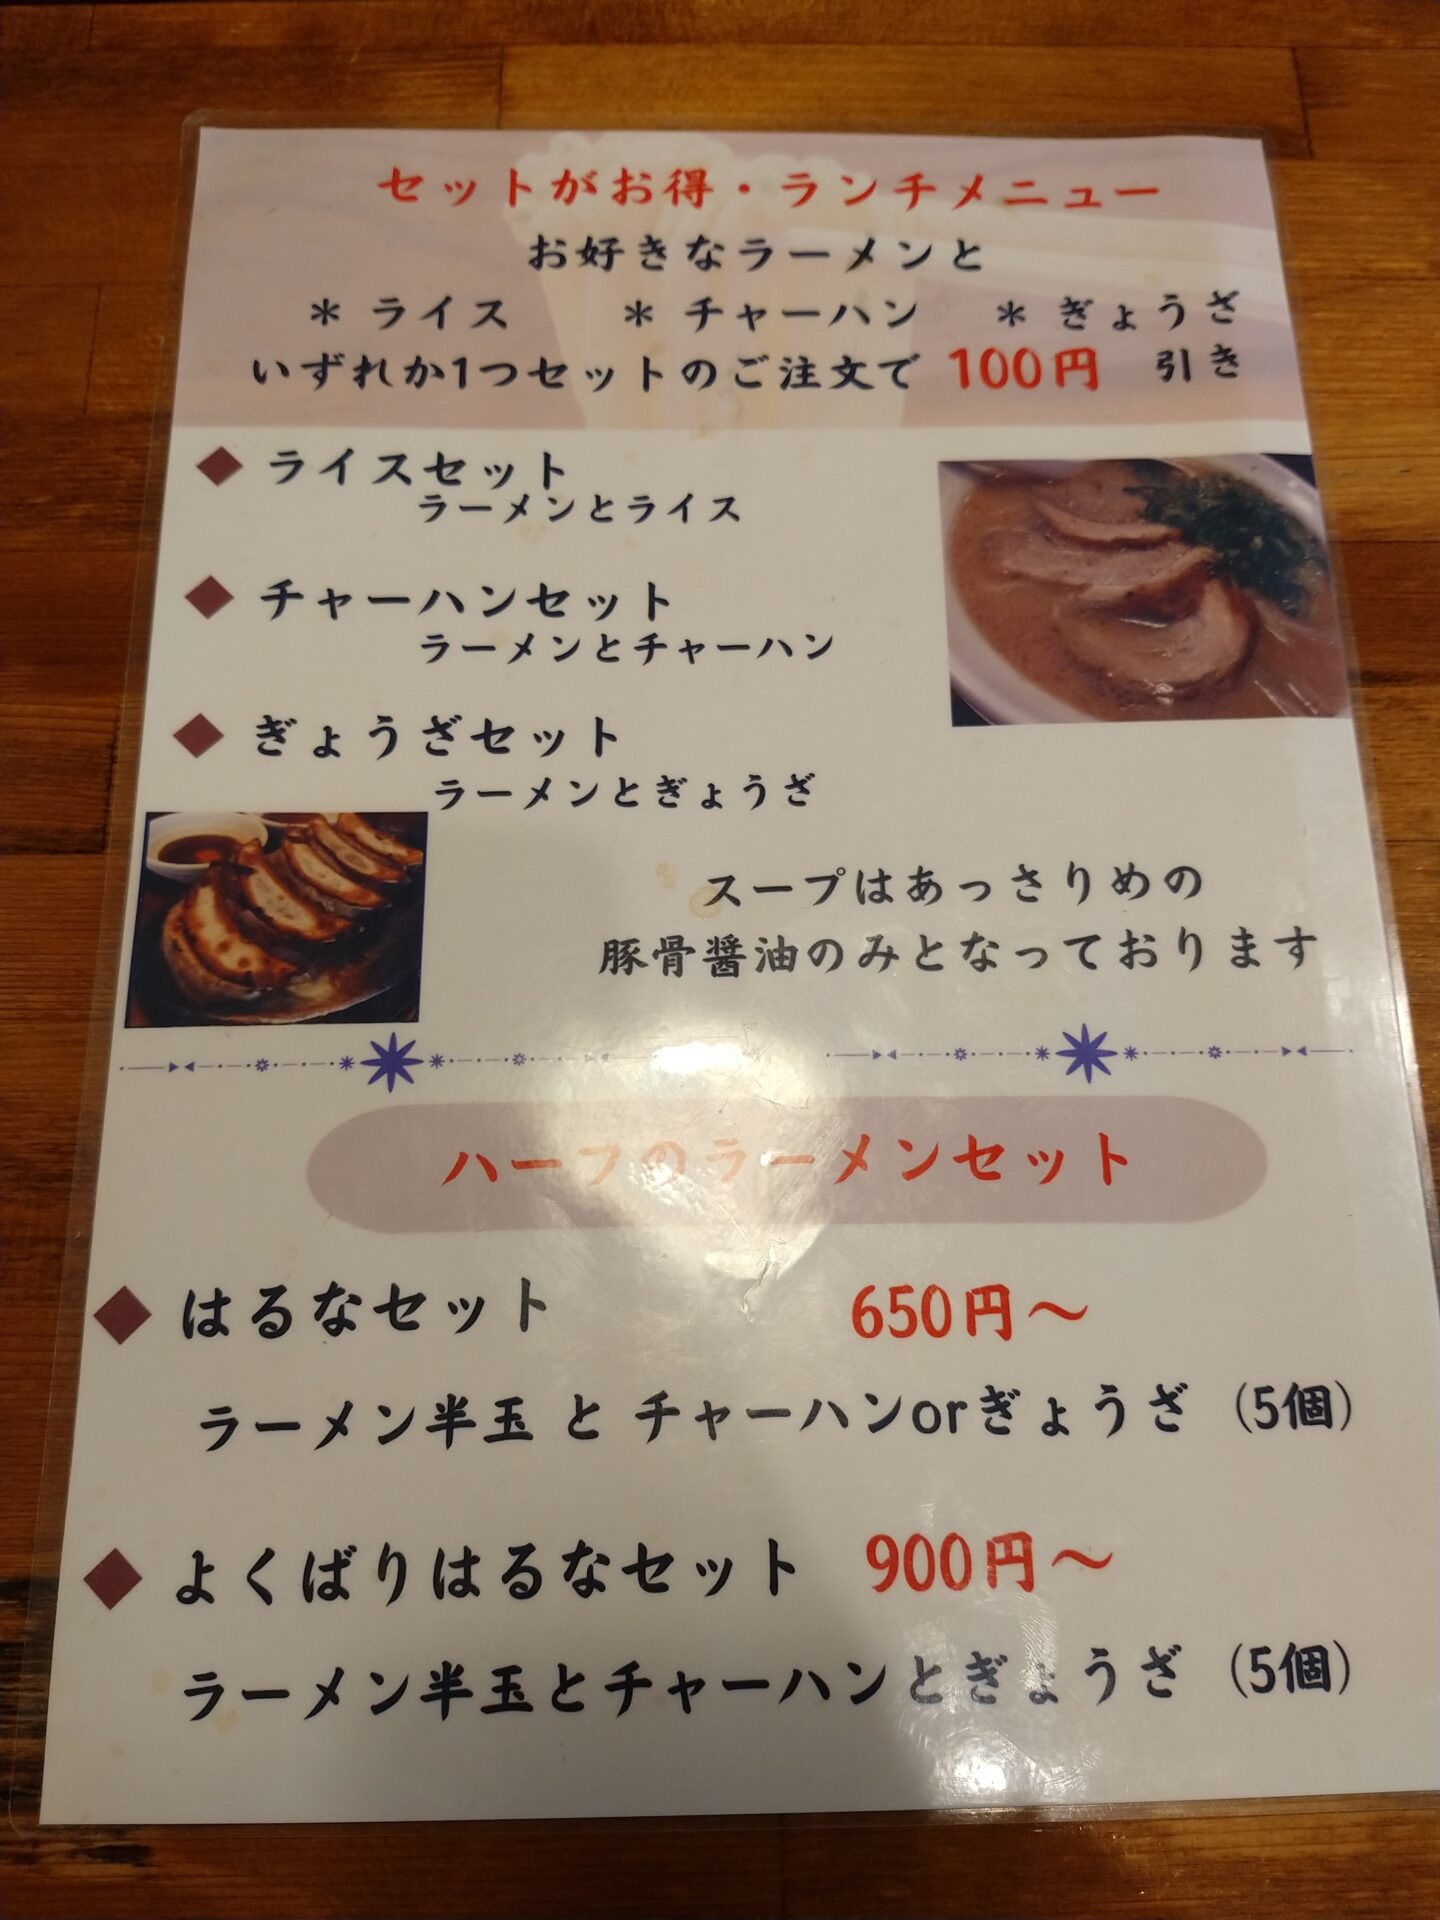 セットがお得・ランチメニュー
お好きなラーメンと
＊ ライス ＊ チャーハン ＊ ぎょうざ
いずれか1つセットのご注文で 100円 引き
◆ ライスセット
ラーメンとライス
◆ チャーハンセット
ラーメンとチャーハン
◆ ぎょうざセット
ラーメンとぎょうざ
スープはあっさりめの
豚骨醤油のみとなっております
ハーフのラーメンセット
◆ はるなセット 650円～
ラーメン半玉 と チャーハンorぎょうざ（5個）
◆ よくばりはるなセット 900円～
ラーメン半玉とチャーハンとぎょうざ（5個）